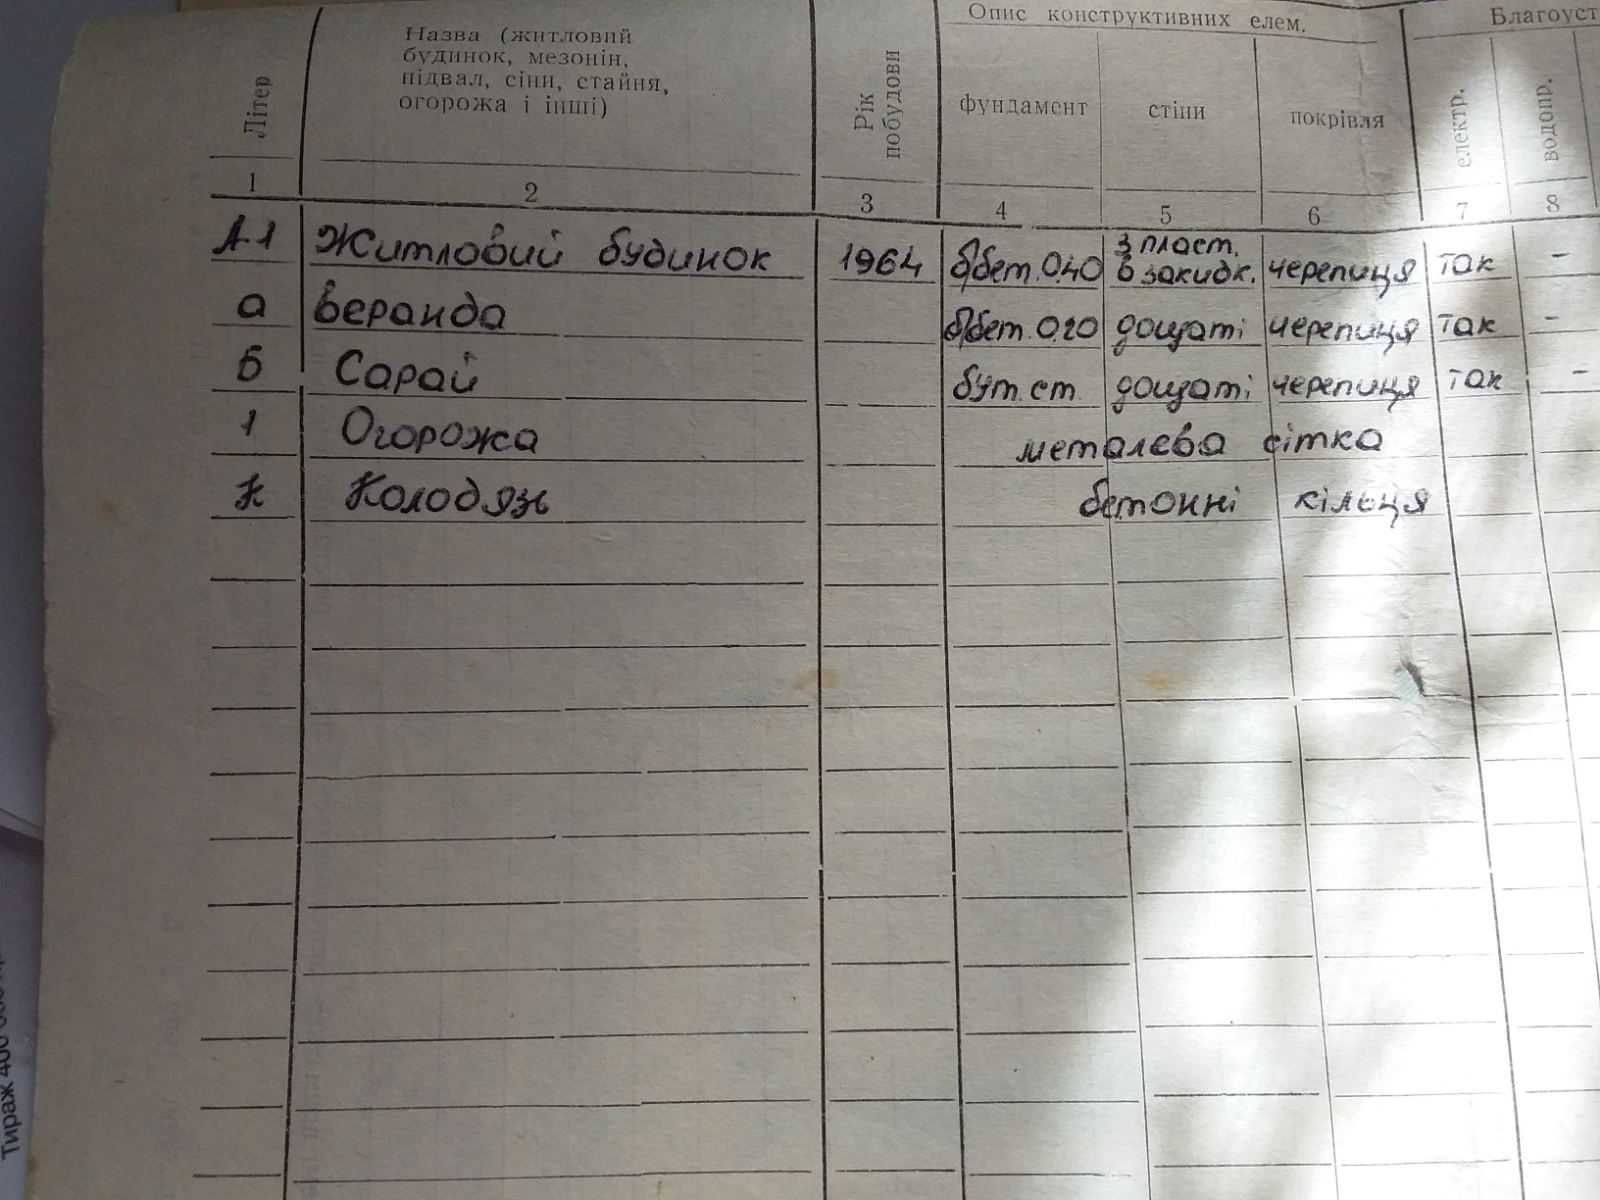 Опис конструктивних елем. Благоуст
Літер
Назва (житловий
будинок, мезонін,
підвал, сіни, стайня,
огорожа і інші)
Рік
побудови
фундамент стіни покрівля електр. водопр.
1 2 3 4 5 6 7 8
А-1 Житловий будинок 1964 б/бет. 0.40 з пласт. в закидк. черепиця так -
а веранда б/бет. 0.20 дощаті черепиця так -
Б Сарай бут. ст. дощаті черепиця так -
1 Огорожа металева сітка
К Колодязь бетонні кільця
Тираж 400